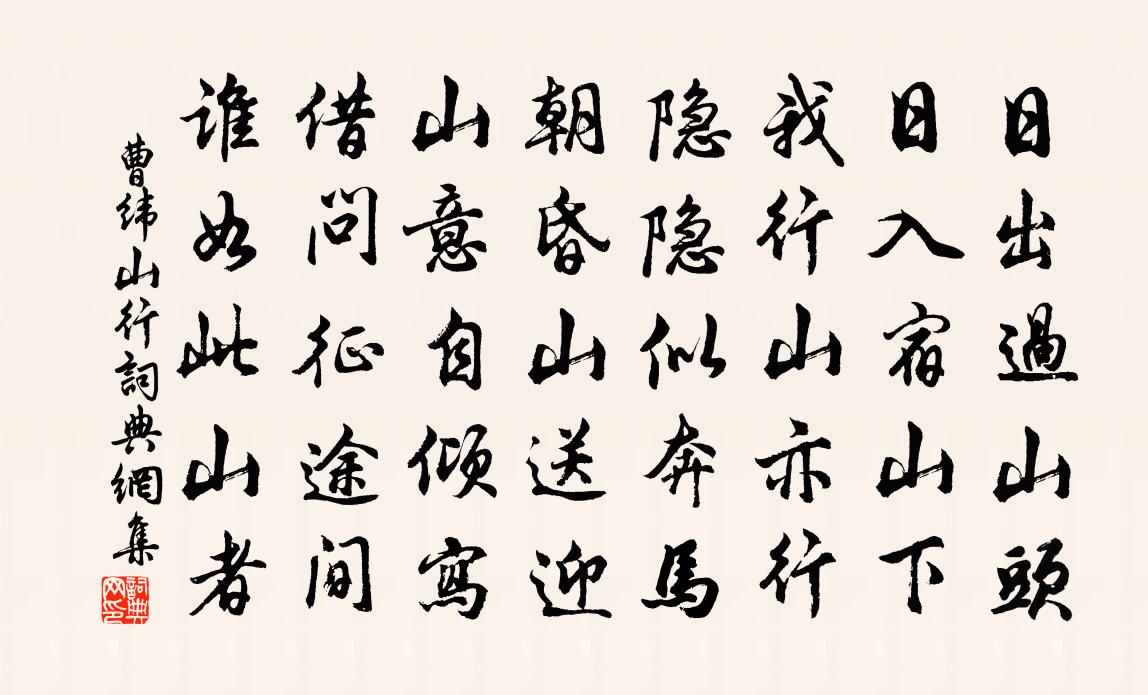 日出過山頭
日入宿山下
我行山亦行
隐隐似奔馬
朝昏山送迎
山意自傾寫
借问征途间
誰如此山者
曹緯山行詞典網集
詞典
网印